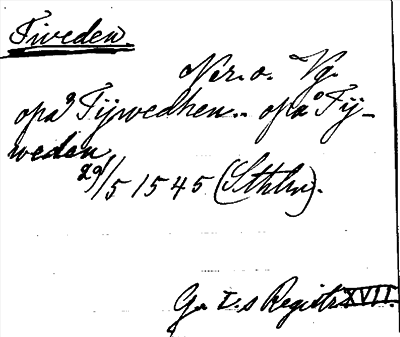 Tiveden.
Ner. o. Vg.
opå Tijwedhen.. opå Tij-
weden
29/5 1545 (Sthlm).
G. I:s Registr. XVII.